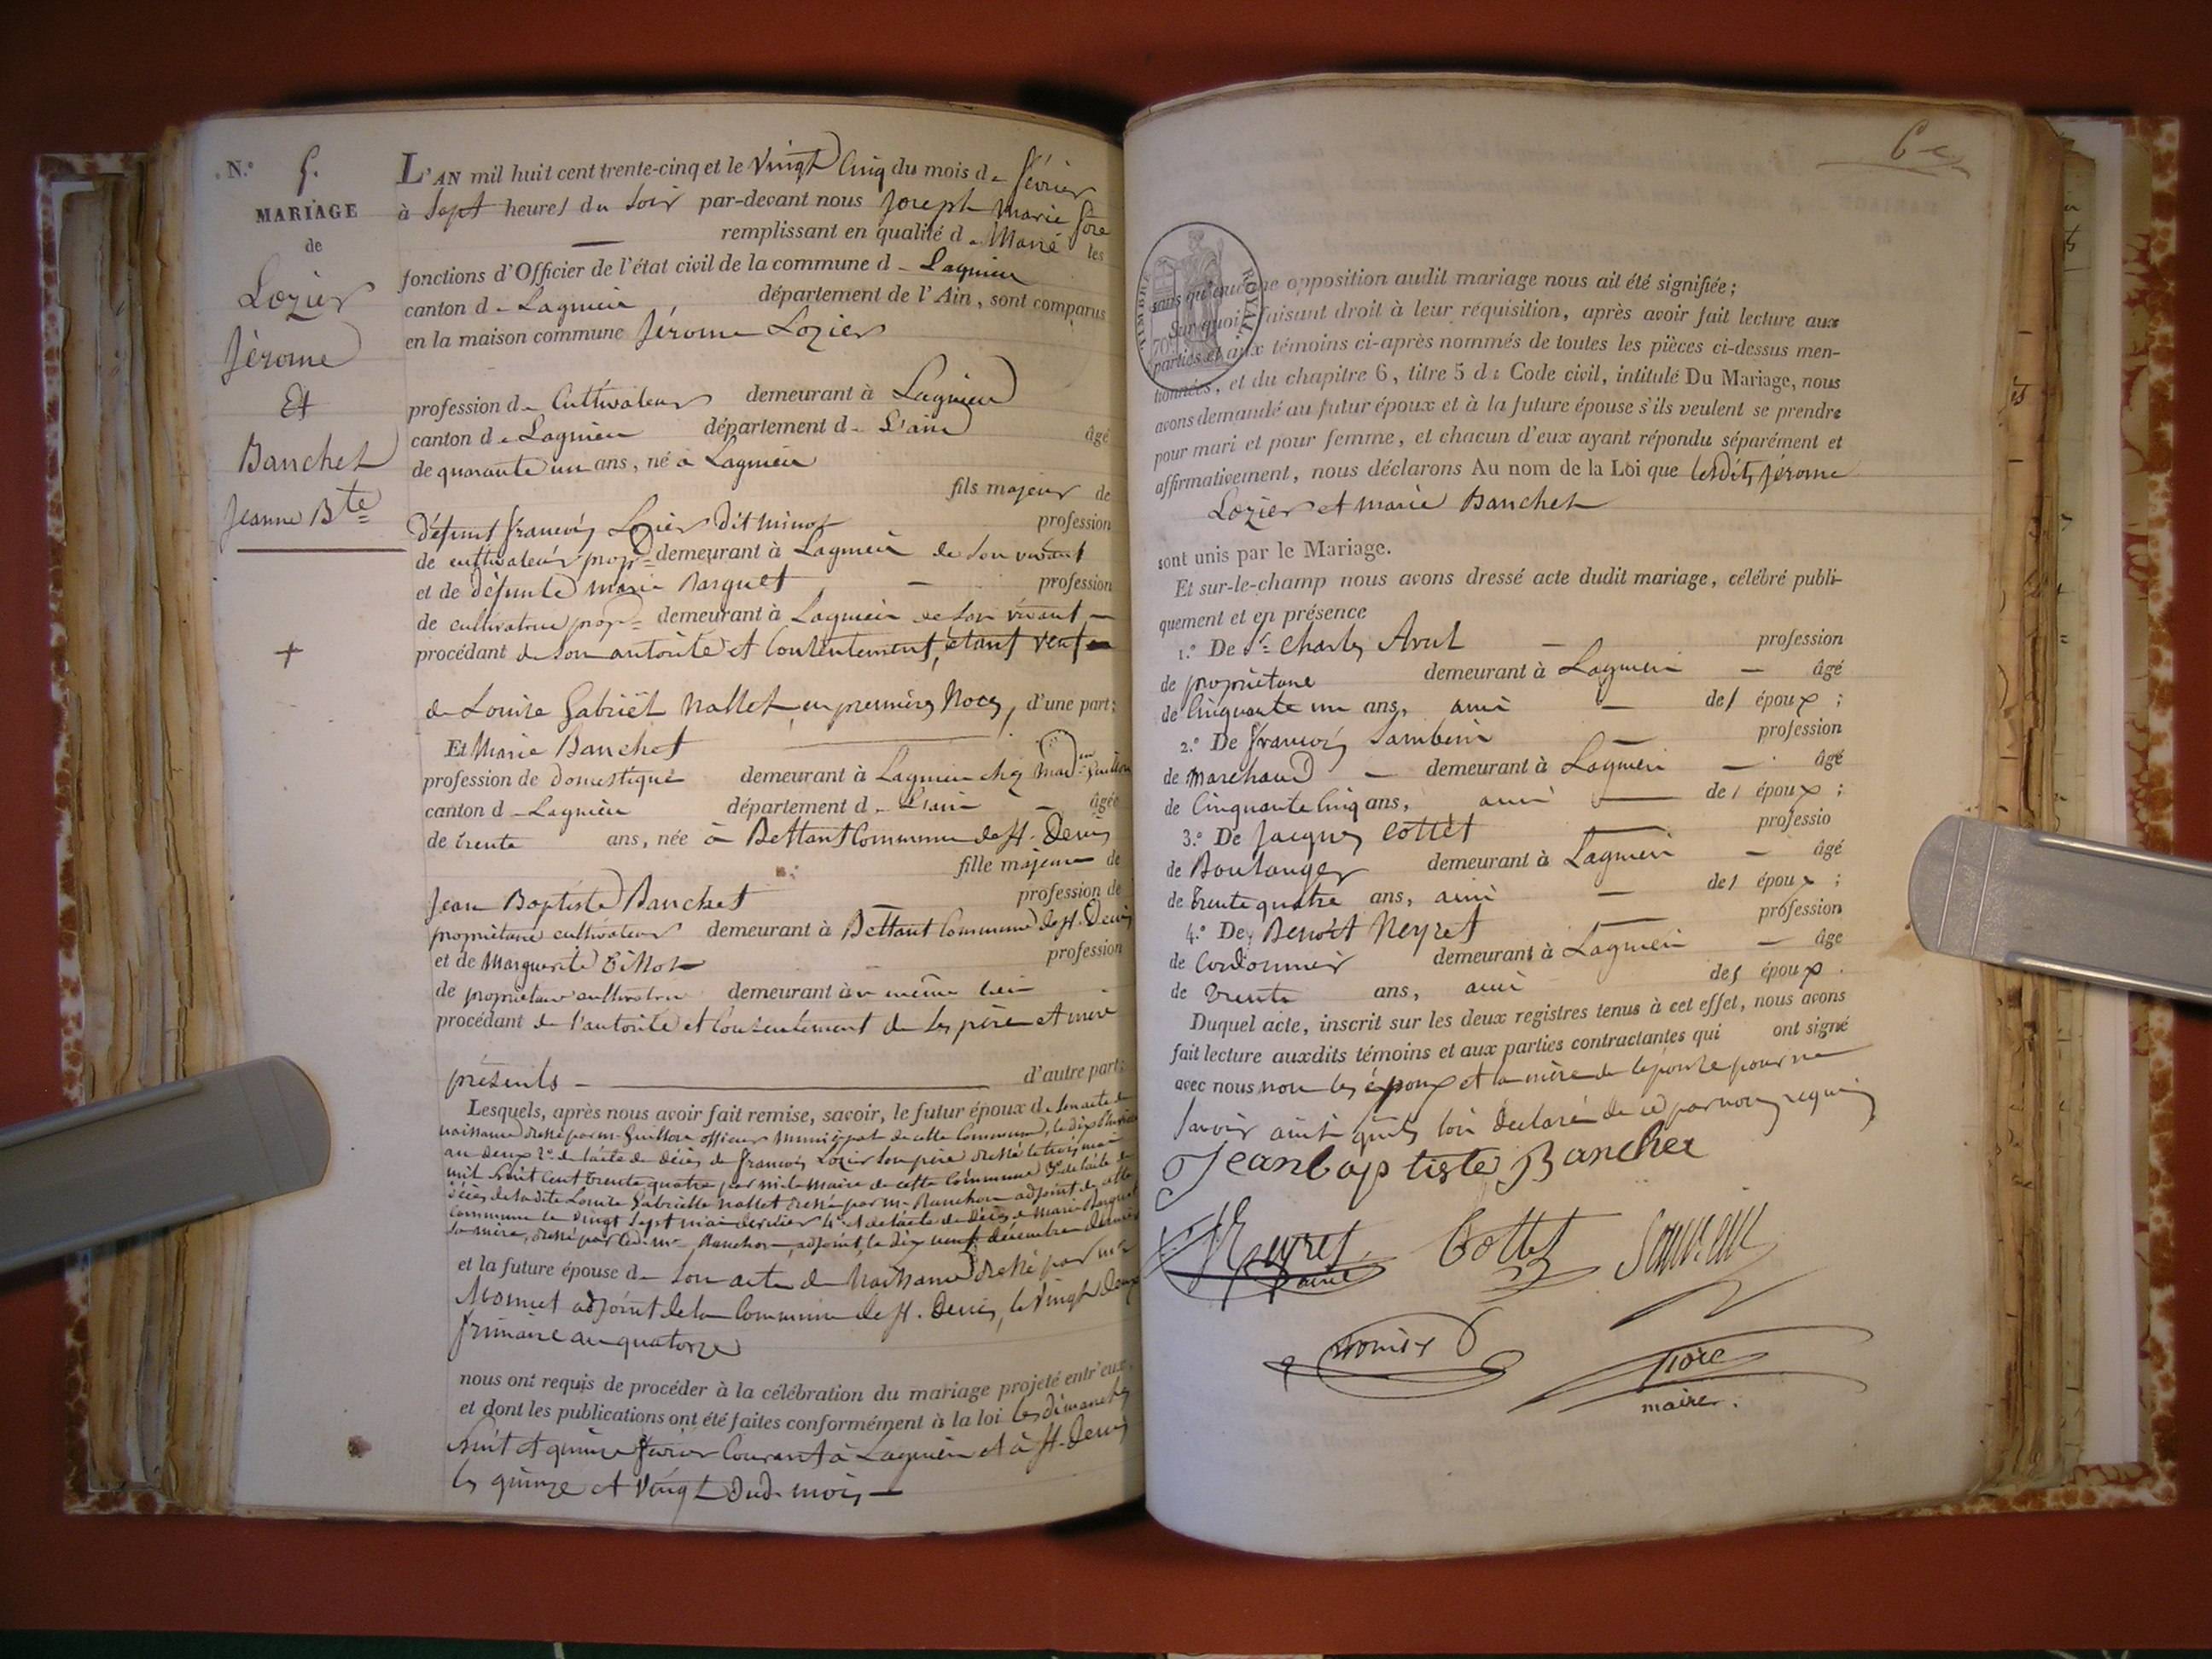 N.° 5.
MARIAGE
de
Lozier
Jérome
Et
Banchet
Jeanne Bte
+
L'AN mil huit cent trente-cinq et le Vingt Cinq du mois de février
à Sept heures du Soir par-devant nous Joseph Marie fore
remplissant en qualité de Maire les
fonctions d'Officier de l'état civil de la commune de Lagnieu
canton de Lagnieu département de l'Ain, sont comparus
en la maison commune Jérome Lozier
profession de Cultivateur demeurant à Lagnieu
canton de Lagnieu département de L'ain âgé
de quarante un ans, né à Lagnieu
fils majeur de
défunt françois Lozier dit minot profession
de cultivateur propre demeurant à Lagnieu de son vivant
et de défunte marie Barquet profession
de cultivatrice propre demeurant à Lagnieu de son vivant
procédant de son autorité et Consentement, étant veuf
de Louise Gabriël Nallet en premières Noces, d'une part;
Et Marie Banchet
profession de domestique demeurant à Lagnieu chez Mad
canton de Lagnieu département de L'ain âgée
de trente ans, née à Bettant Commune de St. Denis
fille majeure de
Jean Baptiste Banchet profession de
propriétaire cultivateur demeurant à Bettant Commune de St. Denis
et de Marguerite Billot profession
de propriétaire cultivatrice demeurant au même lieu
procédant de l'autorité et Consentement de ses père et mère
présents d'autre part;
Lesquels, après nous avoir fait remise, savoir, le futur époux de son acte de
naissance dressé par mr Guillon officier Municipal de cette Commune, le dix
an deux 2° de l'acte de décès de françois Lozier son père dressé le trois mai
mil huit Cent trente quatre par mr le Maire de cette Commune 3° de l'acte de
décès de ladite Louise Gabrielle Nallet dressé par mr Ranchon adjoint de cette
Commune le vingt Sept mai dernier 4° et de l'acte de décès de Marie Barquet
sa mère, dressé par led. mr Ranchon, adjoint, le dix neuf décembre dernier
et la future épouse de son acte de Naissance dressé par mr
Monnet adjoint de la Commune de St. Denis, le vingt deux
frimaire an quatorze
nous ont requis de procéder à la célébration du mariage projeté entr'eux,
et dont les publications ont été faites conformément à la loi les dimanches
huit et quinze février Courant à Lagnieu et à St. Denis
les quinze et Vingt dud. mois
6
TIMBRE ROYAL
sans qu'aucune opposition audit mariage nous ait été signifiée;
Sur quoi, faisant droit à leur réquisition, après avoir fait lecture aux
parties et aux témoins ci-après nommés de toutes les pièces ci-dessus men-
tionnées, et du chapitre 6, titre 5 du Code civil, intitulé Du Mariage, nous
avons demandé au futur époux et à la future épouse s'ils veulent se prendre
pour mari et pour femme, et chacun d'eux ayant répondu séparément et
affirmativement, nous déclarons Au nom de la Loi que lesdits Jérome
Lozier et marie Banchet
sont unis par le Mariage.
Et sur-le-champ nous avons dressé acte dudit mariage, célébré publi-
quement et en présence
1.° De Sr Charles profession
de propriétaire demeurant à Lagnieu âgé
de Cinquante un ans, ami des époux;
2.° De françois profession
de Marchand demeurant à Lagnieu âgé
de Cinquante Cinq ans, ami des époux;
3.° De Jacques Cottet professio
de Boulanger demeurant à Lagnieu âgé
de trente quatre ans, ami des époux;
4.° De Benoit Neyret profession
de Cordonnier demeurant à Lagnieu âge
de trente ans, ami des époux.
Duquel acte, inscrit sur les deux registres tenus à cet effet, nous avons
fait lecture auxdits témoins et aux parties contractantes qui ont signé
avec nous non les époux et la mère de l'épouse pour ne
Savoir ainsi qu'ils l'on déclaré de ce par nous requis
Jean baptiste Bancher
Neyret
Cottet
fore
maire.